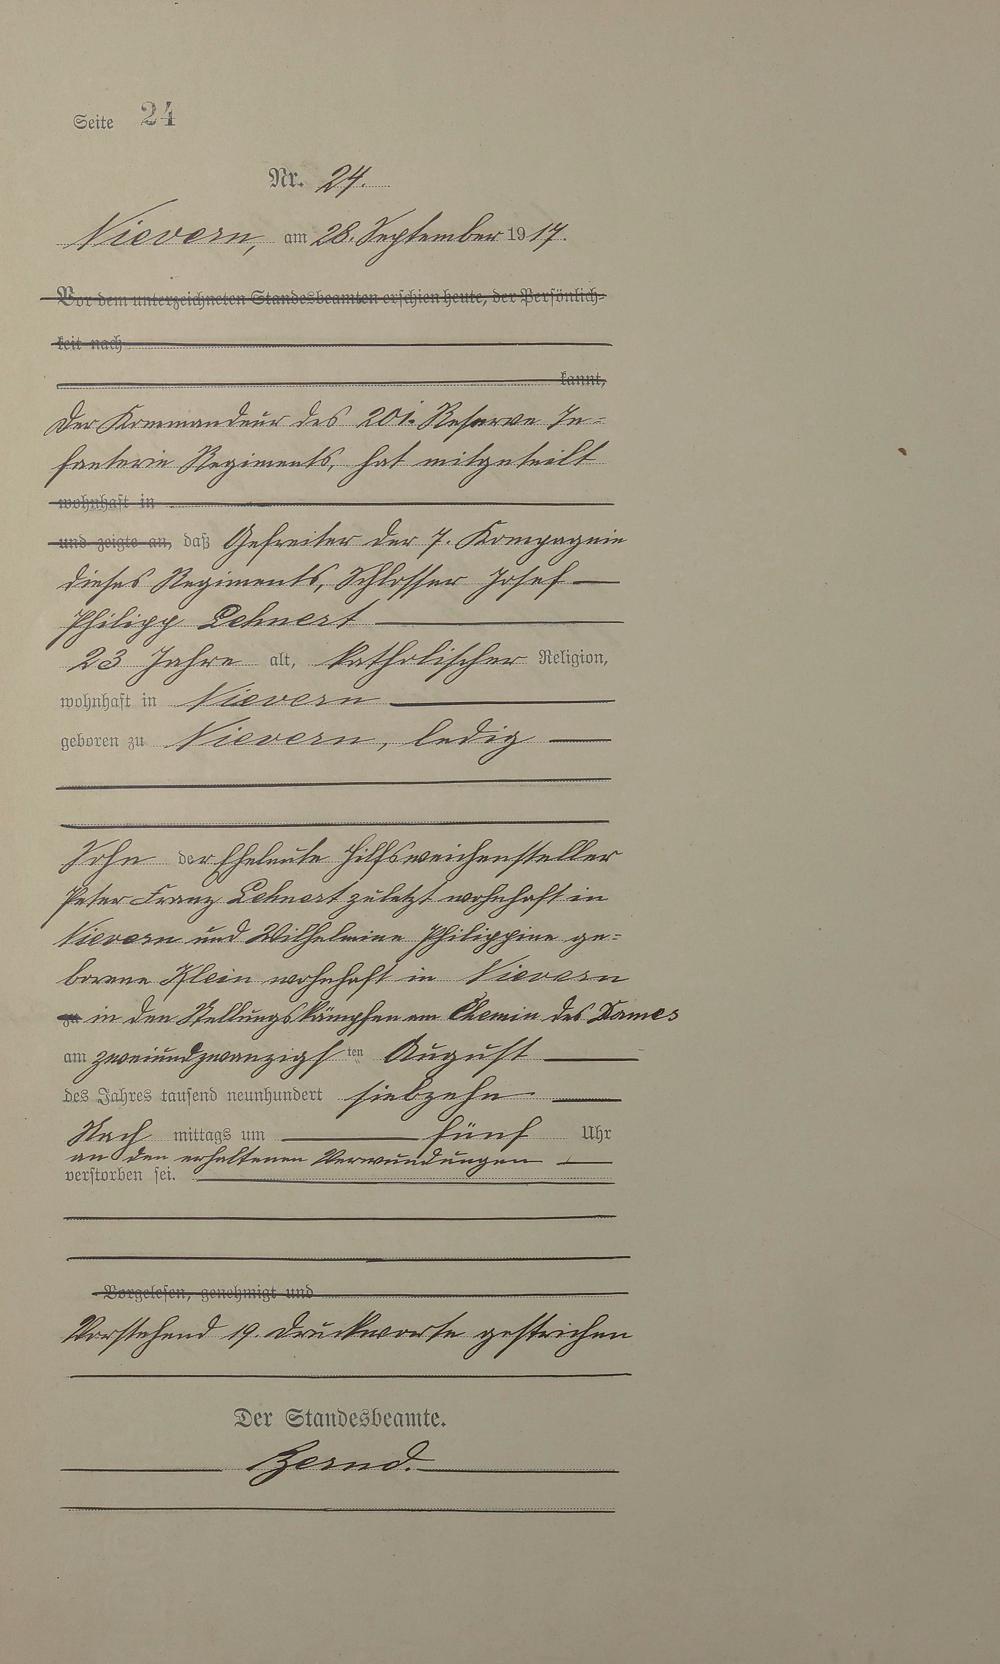 Seite 24
Nr. 24.
Nievern, am 28. September 1917.
Vor dem unterzeichneten Standesbeamten erschien heute, der Persönlich-
keit nach
kannt,
Der Kommandeur des 201. Reserve In-
fanterie Regiments, hat mitgeteilt
wohnhaft in
und zeigte an, daß Gefreiter der 7. Kompagnie
dieses Regiments, Schlosser Josef
Philipp Lehnert
23 Jahre alt, katholischer Religion,
wohnhaft in Nievern
geboren zu Nievern, ledig
Sohn der Eheleute Hilfsweichensteller
Peter Franz Lehnert zuletzt wohnhaft in
Nievern und Wilhelmine Philippine ge-
borene Klein wohnhaft in Nievern
zu in den Stellungskämpfen am Chemin des Dames
am zweiundzwanzigsten August
des Jahres tausend neunhundert siebzehn
Nach mittags um fünf Uhr
an den erhaltenen Verwundungen
verstorben sei.
Vorgelesen, genehmigt und
Vorstehend 19. Druckworte gestrichen
Der Standesbeamte.